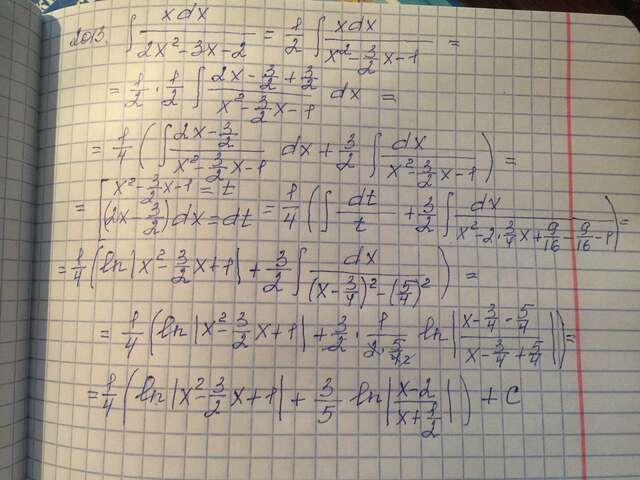 2013. ∫ xdx/(2x²-3x-2) = 1/2 ∫ xdx/(x²-3/2x-1) =
= 1/2 · 1/2 ∫ (2x-3/2+3/2)/(x²-3/2x-1) dx =
= 1/4 (∫ (2x-3/2)/(x²-3/2x-1) dx + 3/2 ∫ dx/(x²-3/2x-1)) =
= [x²-3/2x-1=t
(2x-3/2)dx=dt = 1/4 (∫ dt/t + 3/2 ∫ dx/(x²-2·3/4x+9/16-9/16-1)) =
= 1/4 (ln|x²-3/2x+1| + 3/2 ∫ dx/((x-3/4)²-(5/4)²)) =
= 1/4 (ln|x²-3/2x+1| + 3/2 · 1/(2·5/4) ln|(x-3/4-5/4)/(x-3/4+5/4)|) =
= 1/4 (ln|x²-3/2x+1| + 3/5 ln|(x-2)/(x+1/2)|) + C